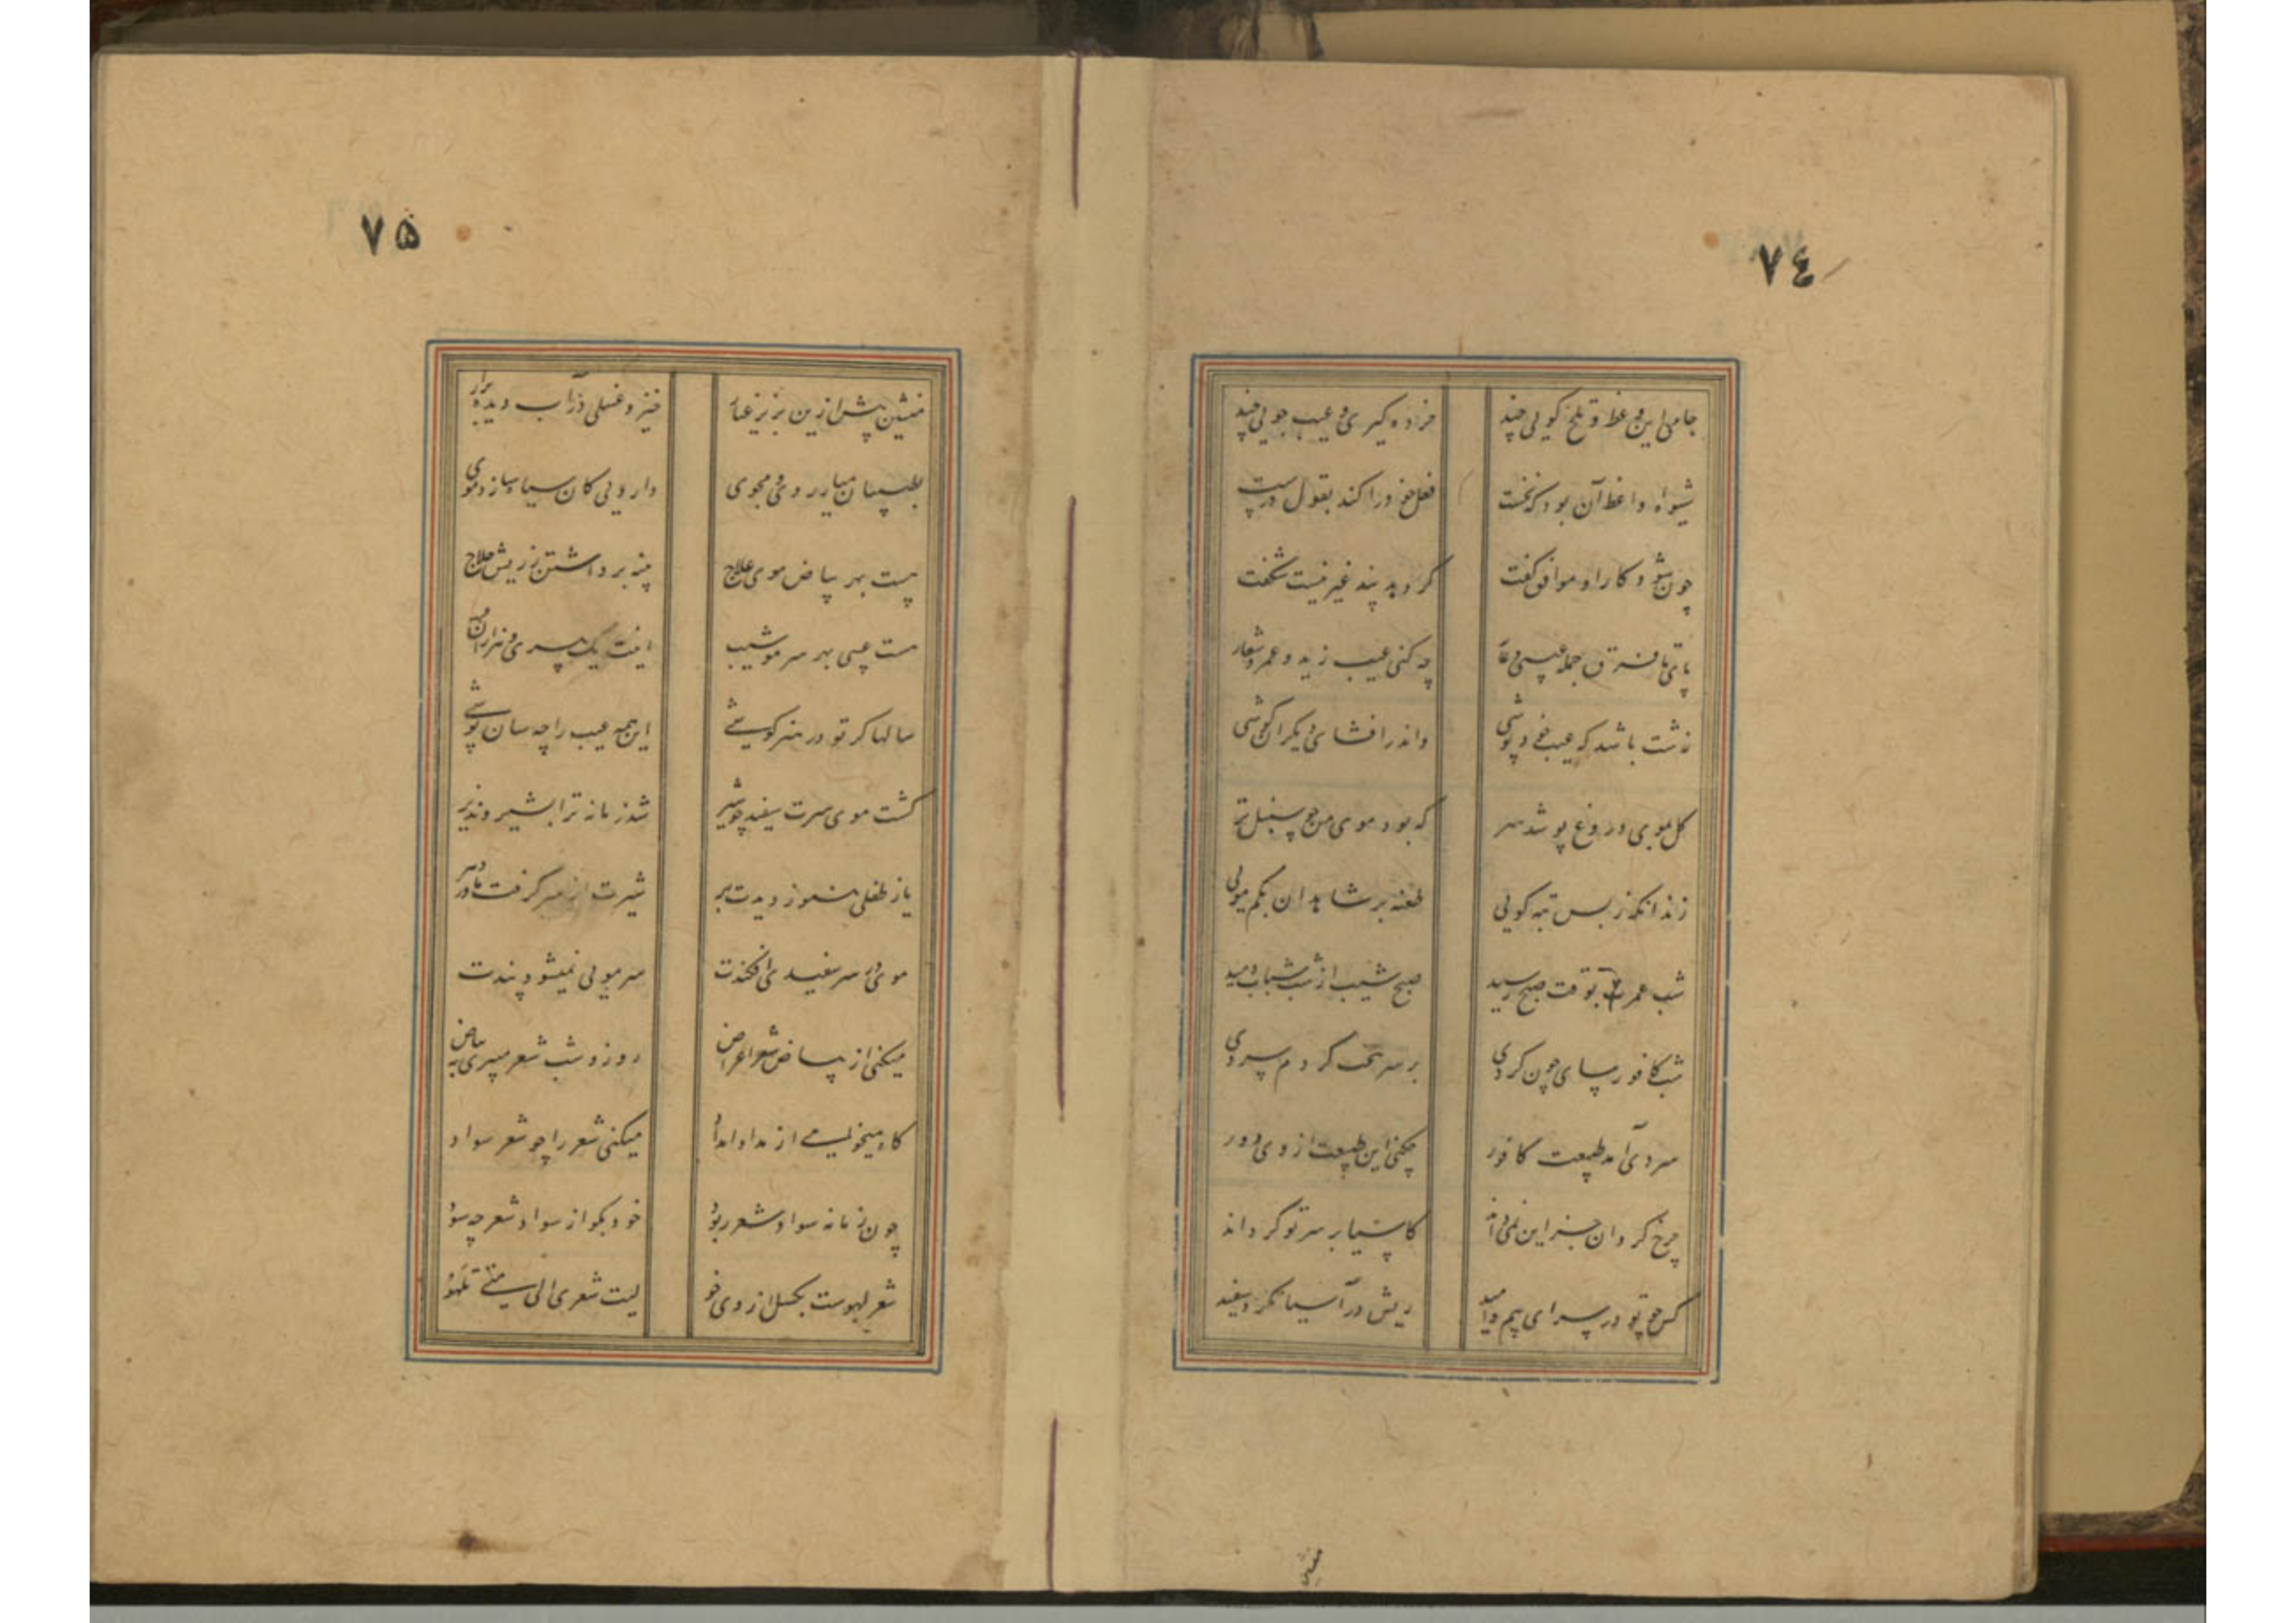 ٧٤
جامی این وعظ و تلخ گویی چند خرده گیری و عیب جویی چند
شیوه واعظ آن بود که نخست فعل خود را کند بقول درست
چون شود کار او موافق گفت گر دهد پند غیر نیست شگفت
پای تا فرق جمله عیبی و عار چه کنی عیب زید و عمرو شعار
زشت باشد که عیب خود پوشی واندر افشای دیگران کوشی
کل بموی دروغ پوشد سر که بود موی من چو سنبل تر
زند آنگه ز بس تبه گویی طعنه بر شاهدان بکم مویی
شب عمرت بوقت صبح رسید صبح شیب از شب شباب دمید
شب کافور سای چون کردی بر سرت گرد سردی
سردی آمد طبیعت کافور چکنی این طبیعت از وی دور
چرخ گردان جز این نمی داند کاسیا بر سر تو گرداند
کس چو تو در سرای بیم و امید ریش در آسیا نکرد سفید
٧۵
منشین پیش ازین بزیر غبار خیز و غسلی در آب دیده برار
بطبیبان میار روی و مجوی دارویی کان سیاه سازد موی
نیست بهر بیاض موی علاج پنبه برداشتن ز ریش حلاج
هست عیبی بهر سر مو شیب اینت یک پیری و هزاران عیب
سالها گر تو در هنر کوشی این همه عیب را چه سان پوشی
گشت موی سرت سفید چو شیر شد زمانه ترا بشیر و نذیر
باز طفلی هنوز دیدت بر شیرت از سر گرفت مادر دهر
موی در سر سفیدی افکندت سر مویی نمیشود پندت
میکنی از بیاض شعر اعراض روز و شب شعر میبری به بیاض
گاه میخواهی از مداد امداد میکنی شعر را چو شعر سواد
چون زمانه سواد شعر ربود خود بگو از سواد شعر چه سود
شعر لهوست بگسل از وی خو لیت شعری الی متی تلهو
منشین